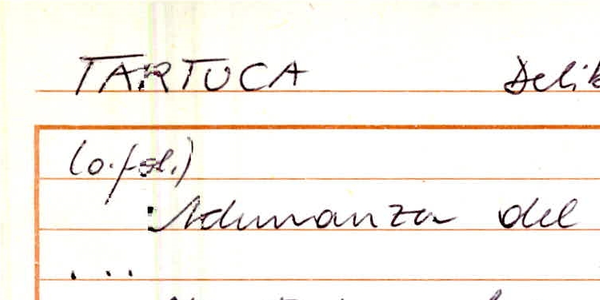 TARTUCA Delib
(o.fol.)
Adunanza del
. . .